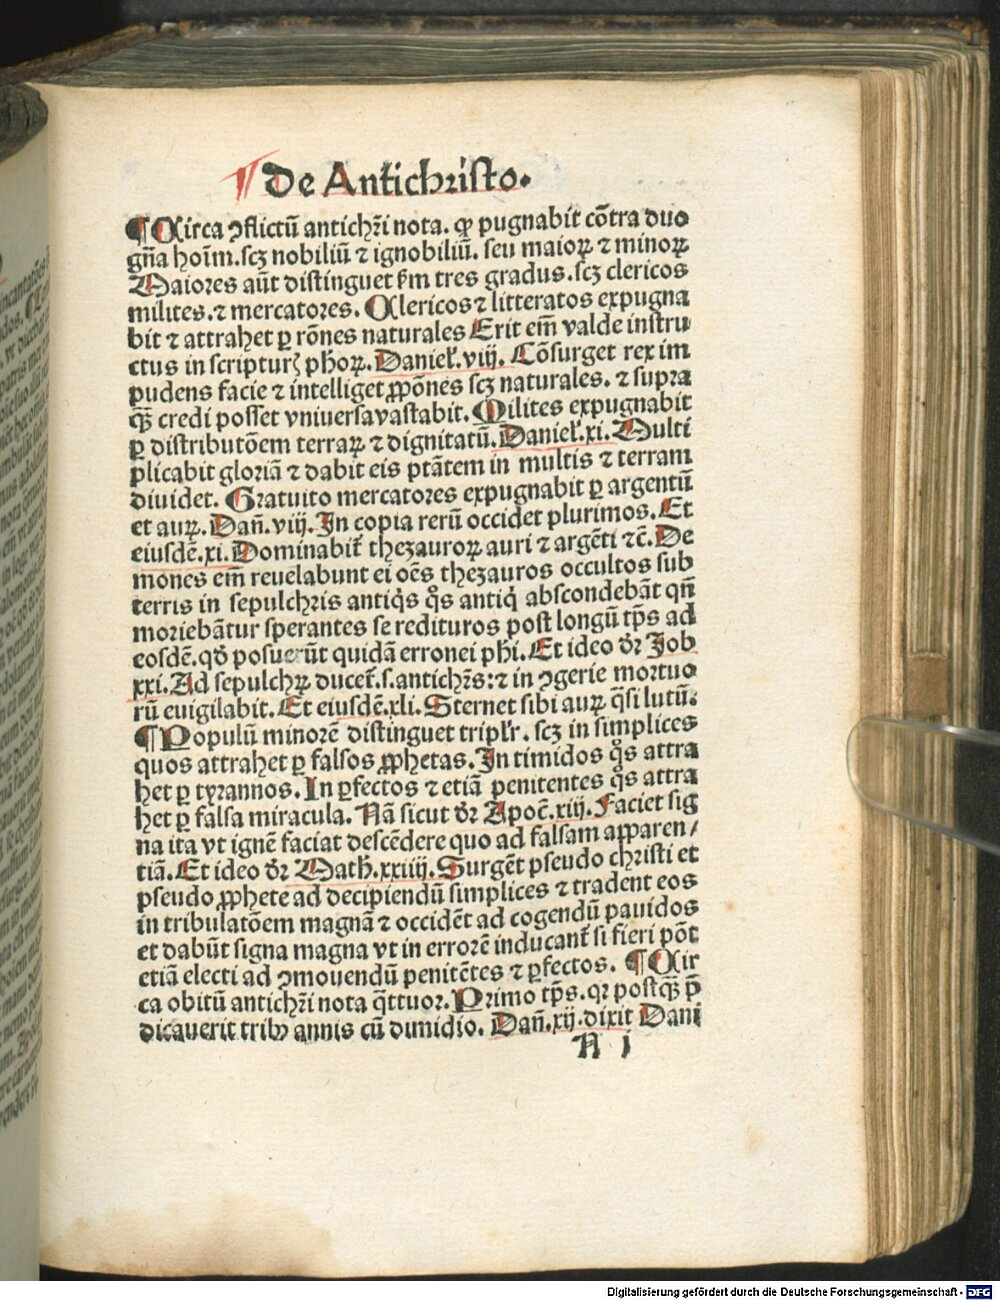 ¶ De Antichristo.
¶ Circa ↄflictū antichr̄i nota. ꝙ pugnabit cōtra duo
gn̄a hoīm. scꝫ nobiliū ⁊ ignobiliū. seu maioꝝ ⁊ minoꝝ
Maiores aūt distinguet ẜm tres gradus. scꝫ clericos
milites. ⁊ mercatores. Clericos ⁊ litteratos expugna
bit ⁊ attrahet ꝑ rōnes naturales Erit em̄ valde instru
ctus in scripturꝭ ph̄oꝝ. Danieł. viij. Cōsurget rex im
pudens facie ⁊ intelliget ꝓpōnes scꝫ naturales. ⁊ supra
qꝫ̄ credi posset vniuersa vastabit. Milites expugnabit
ꝑ distributōem terraꝝ ⁊ dignitatū. Danieł. xi. Multi
plicabit gloriā ⁊ dabit eis ptātem in multis ⁊ terram
diuidet. Gratuito mercatores expugnabit ꝑ argentū
et auꝝ. Dañ. viij. In copia rerū occidet plurimos. Et
eiusdē. xi. Dominabit̄ thezauroꝝ auri ⁊ argēti ⁊c̄. De
mones em̄ reuelabunt ei oēs thezauros occultos sub
terris in sepulchris antiq̇s q̊s antiq̇ abscondebāt qn̄
moriebātur sperantes se redituros post longū tp̄s ad
eosdē. qd̄ posuerūt quidā erronei ph̄i. Et ideo dr̄ Job
xxi. Ad sepulchꝝ ducet̄. s. antichr̄s: ⁊ in ↄgerie mortuo
rū euigilabit. Et eiusdē. xli. Sternet sibi auꝝ q̄si lutū.
¶ Populū minorē distinguet triplr̄. scꝫ in simplices
quos attrahet ꝑ falsos ꝓphetas. In timidos q̊s attra
het ꝑ tyrannos. In ꝑfectos ⁊ etiā penitentes q̊s attra
het ꝑ falsa miracula. Nā sicut dr̄ Apoc̄. xiij. Faciet sig
na ita vt ignē faciat descēdere quo ad falsam apparen/
tiā. Et ideo dr̄ Math̄. xxiiij. Surgēt pseudo christi et
pseudo ꝓphete ad decipiendū simplices ⁊ tradent eos
in tribulatōem magnā ⁊ occidēt ad cogendū pauidos
et dabūt signa magna vt in errorē inducant̄ si fieri pōt
etiā electi ad ↄmouendū penitētes ⁊ ꝑfectos. ¶ Cir
ca obitū antichr̄i nota q̄ttuor. Primo tp̄s. qꝛ postqꝫ̄ p̄
dicauerit tribꝰ annis cū dimidio. Dañ. xij. dixit Dani
N j
Digitalisierung gefördert durch die Deutsche Forschungsgemeinschaft - DFG